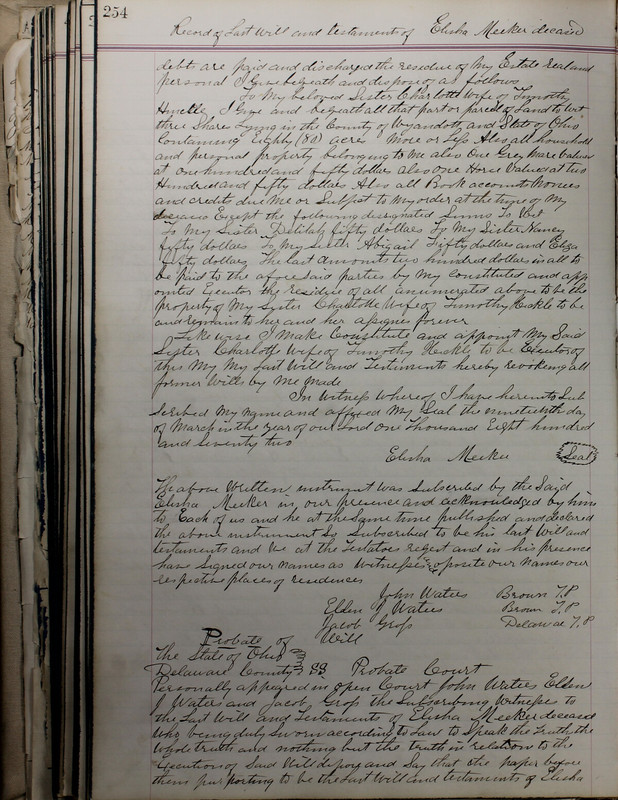 254
Record of Last Will and testament of Elisha Meeker deceasd
debt are paid and discharged the residue of my Estate real and
personal I give begeath and dispose of as follows
To My beloved Sister Charlott Wife of Timoth
I give and begeath all that part or parcel of Land to wit
three Share Lying in the County of Wyandott and State of Ohio
Containing Eighty (80) acres More or Less Also all household
and personal property belonging to me also One Grey Mare Valued
at one hundred and fifty dollars also one Horse Valued at two
Hundred and fifty dollars Also all Book accounts Monies
and credits due Me or Subject to My order at the time of My
decease Except the following designated Sums To Wit
To My Sister Delilah fifty dollars To My Sister Nancy
fifty dollars To My sister Abigail Fifty dollars and Eliza
fifty dollars The last amounts two hundred dollars in all to
be paid to the afore said parties by My Constituted and app
ointed Executor the residue of all enumerated above to be the
property of My Sister Charlotte Wife of Timothy Heckle to be
and remain to her and her assignes forever
Like wise I Make Constitute and appoint My Said
Sister Charlotte Wife of Timothy Heckle to be Executor of
this My My Last Will and Testiments hereby revoking all
former Wills by Me Made
In Witness Whereof I have hereinto Sub
scribed My name and affixed My Seal the nineteenth day
of March in the year of our Lord one Thousand Eight hundred
and Seventy two
Elisha Meeker Seal
The above Written instrument was Subscribed by the Said
Elisha Meeker in our presence and acknowledged by him
to Each of us and he at the Same time published and declared
the above instrument So Subscribed to be his Last Will and
testaments and We at the Testatoes reqest and in his presence
have Signed our Names as Witnesses oposite our Names our
respective places of residences
John Waters Brown T.P
Ellen J Waters Brown T.P
Jacob Gross Delawae T.P
Probate of Will
The State of Ohio
Delaware County SS Probate Court
Personally appeared in open Court John Waters Ellen
J Waters and Jacob Gross the Subscribing Witnesses to
the Last Will and Testaments of Elisha Meeker deceased
Who being duly Sworn according to Law to Speak the Truth the
Whole truth and nothing but the truth in relation to the
Execution of Said Will depose and Say that the paper before
them purporting to be the Last Will and testaments of Elisha